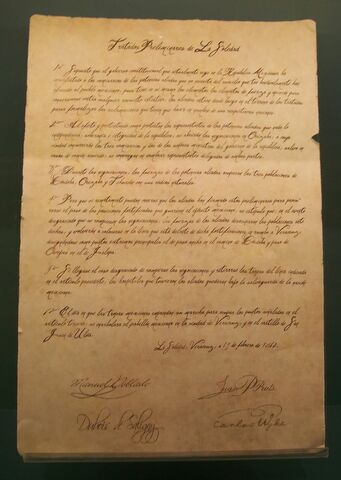 Tratados Preliminares de La Soledad
1º Supuesto que el gobierno constitucional que actualmente rige en la República Mexicana ha
manifestado a los comisarios de las potencias aliadas que no necesita del auxilio que tan benévolamente han
ofrecido al pueblo mexicano, pues tiene en sí mismo los elementos de fuerza y opinión para
conservarse contra cualquier revuelta intestina, los aliados entran desde luego en el terreno de los tratados
para formalizar las reclamaciones que tienen que hacer en nombre de sus respectivas naciones.
2º Al efecto y protestando como protestan los representantes de las potencias aliadas que nada
contra la independencia, soberanía e integridad de la república, se abrirán las negociaciones en Orizaba, a cuya
ciudad concurrirán los tres comisarios y dos de los señores ministros del gobierno de la república, salvo en
caso de mutuo acuerdo, se convenga en nombrar representantes delegados de ambas partes.
3º Durante las negociaciones, las fuerzas de las potencias aliadas ocuparán las tres poblaciones de
Córdoba, Orizaba y Tehuacán con sus radios naturales.
4º Para que ni remotamente pueda creerse que los aliados han firmado estos preliminares para
el paso de las posiciones fortificadas que guarnece el ejército mexicano, se estipula que, en el evento
desgraciado que se rompiesen las negociaciones, las fuerzas de los aliados desocuparán las poblaciones
dichas, y volverán a colocarse en la línea que está delante de dichas fortificaciones, en rumbo a Veracruz,
designándose como puntos extremos principales el de paso ancho en el camino de Córdoba y paso de
Ovejas en el de Jalapa.
5º Si llegase el caso desgraciado de romperse las negociaciones y retirarse las tropas
en el artículo precedente, los hospitales que tuvieren los aliados quedarán bajo la salvaguardia de la nación
mexicana.
6º El día en que las tropas mexicanas emprendan su marcha para ocupar los puntos señalados en el
artículo tercero, se enarbolará el pabellón mexicano en la ciudad de Veracruz y en el castillo de San
Juan de Ulúa.
La Soledad, Veracruz, a 19 de febrero de 1862.
Manuel Doblado
Juan P. Prim
Dubois de Saligny
Carlos Wyke